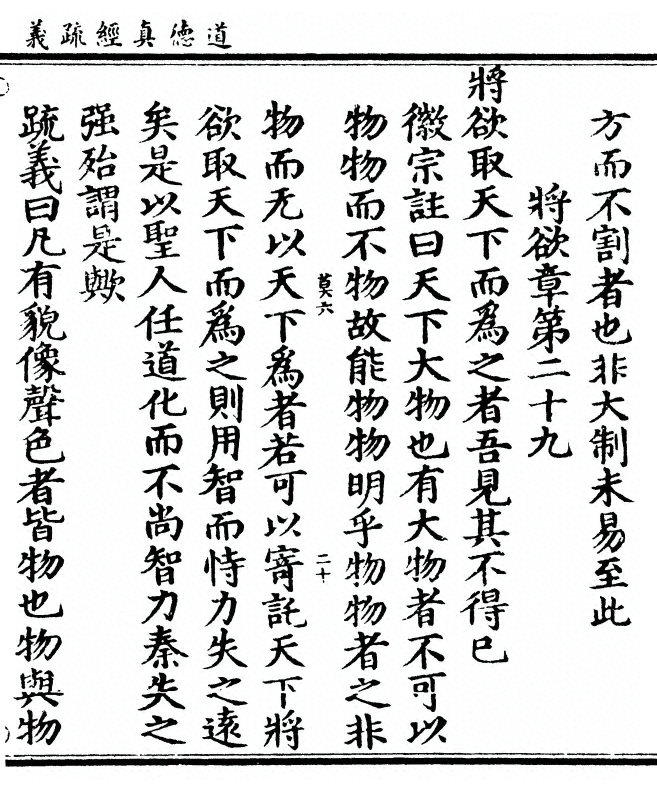 道德真經疏義
方而不割者也非大制未易至此
將欲章第二十九
將欲取天下而爲之者吾見其不得已
徽宗註曰天下大物也有大物者不可以
物物而不物故能物物明乎物物者之非
莫六
二十
物而无以天下爲者若可以寄託天下將
欲取天下而爲之則用智而恃力失之遠
矣是以聖人任道化而不尚智力秦失之
强殆謂是歟
疏義曰凡有貌像聲色者皆物也物與物